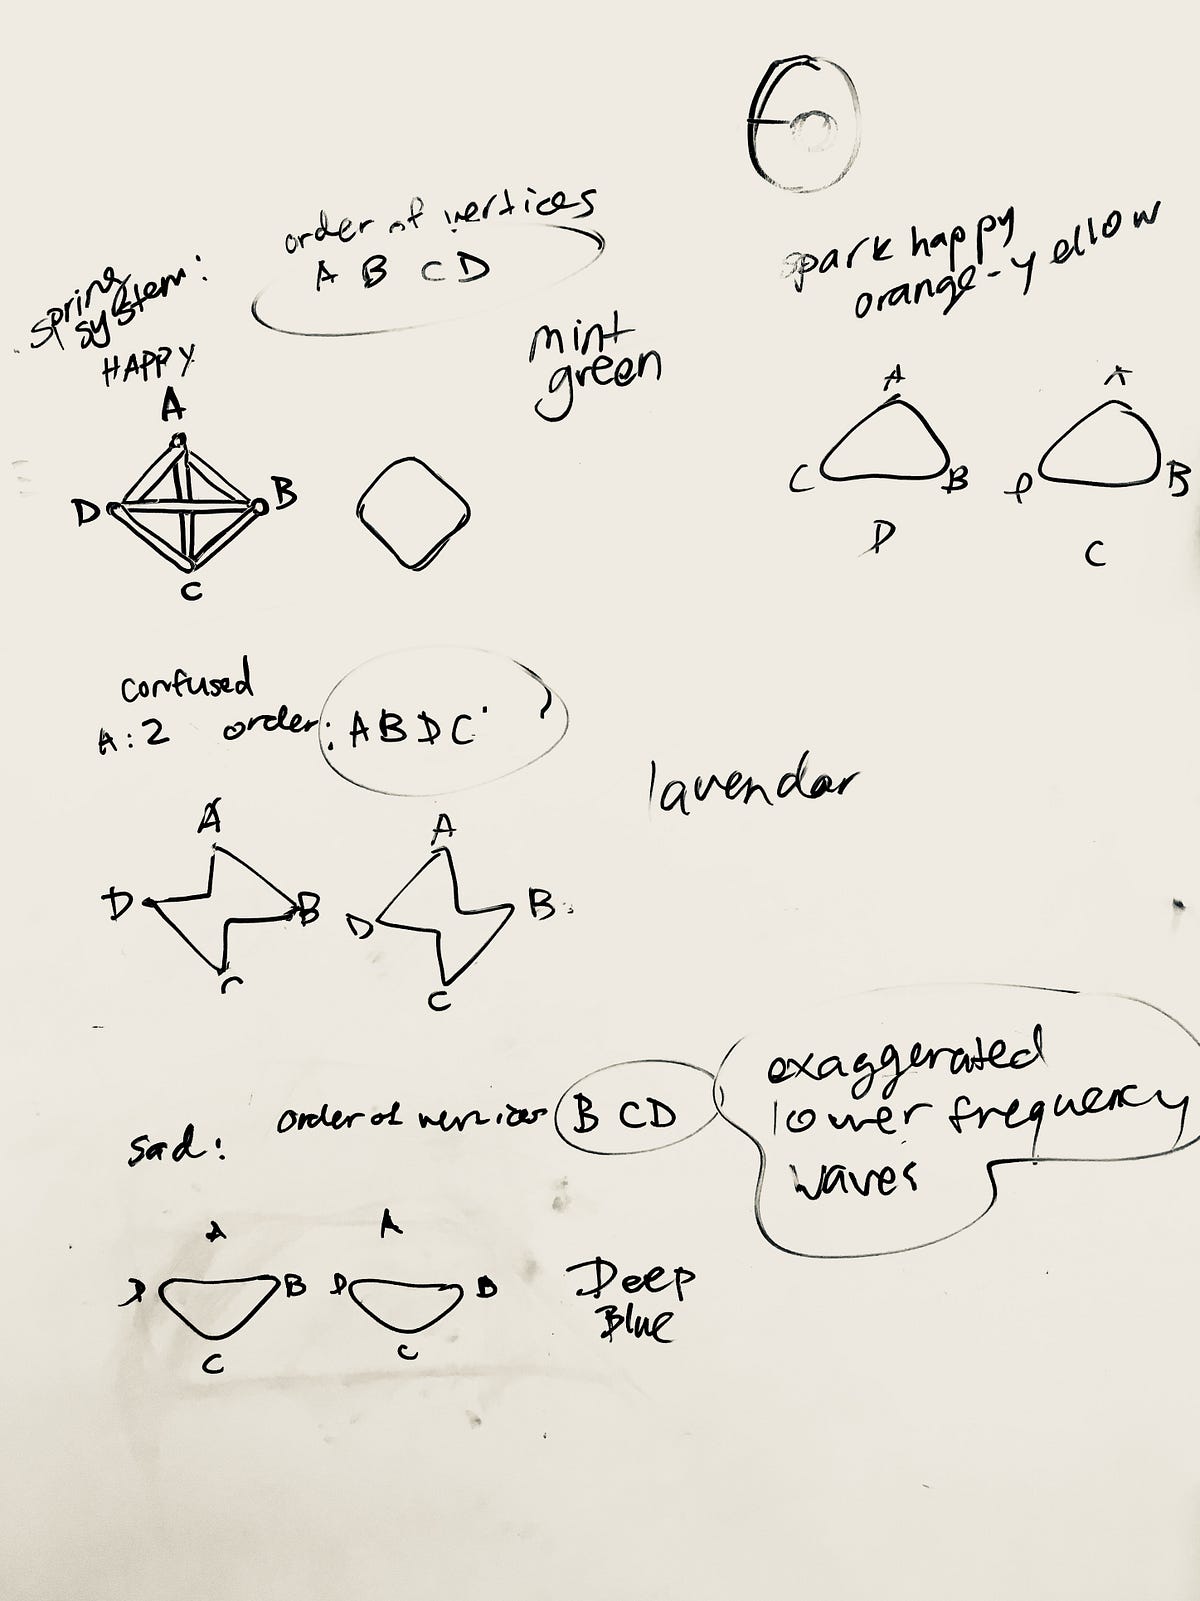 order of vertices
A B C D
spring
system:
HAPPY
A
D
B
C
mint
green
spark happy
orange-yellow
A
C
B
D
A
D
B
C
confused
A:2 order: A B D C
lavendar
A
D
B
C
A
D
B
C
exaggerated
lower frequency
waves
sad:
order of vertices B C D
A
D
B
C
A
D
B
C
Deep
Blue